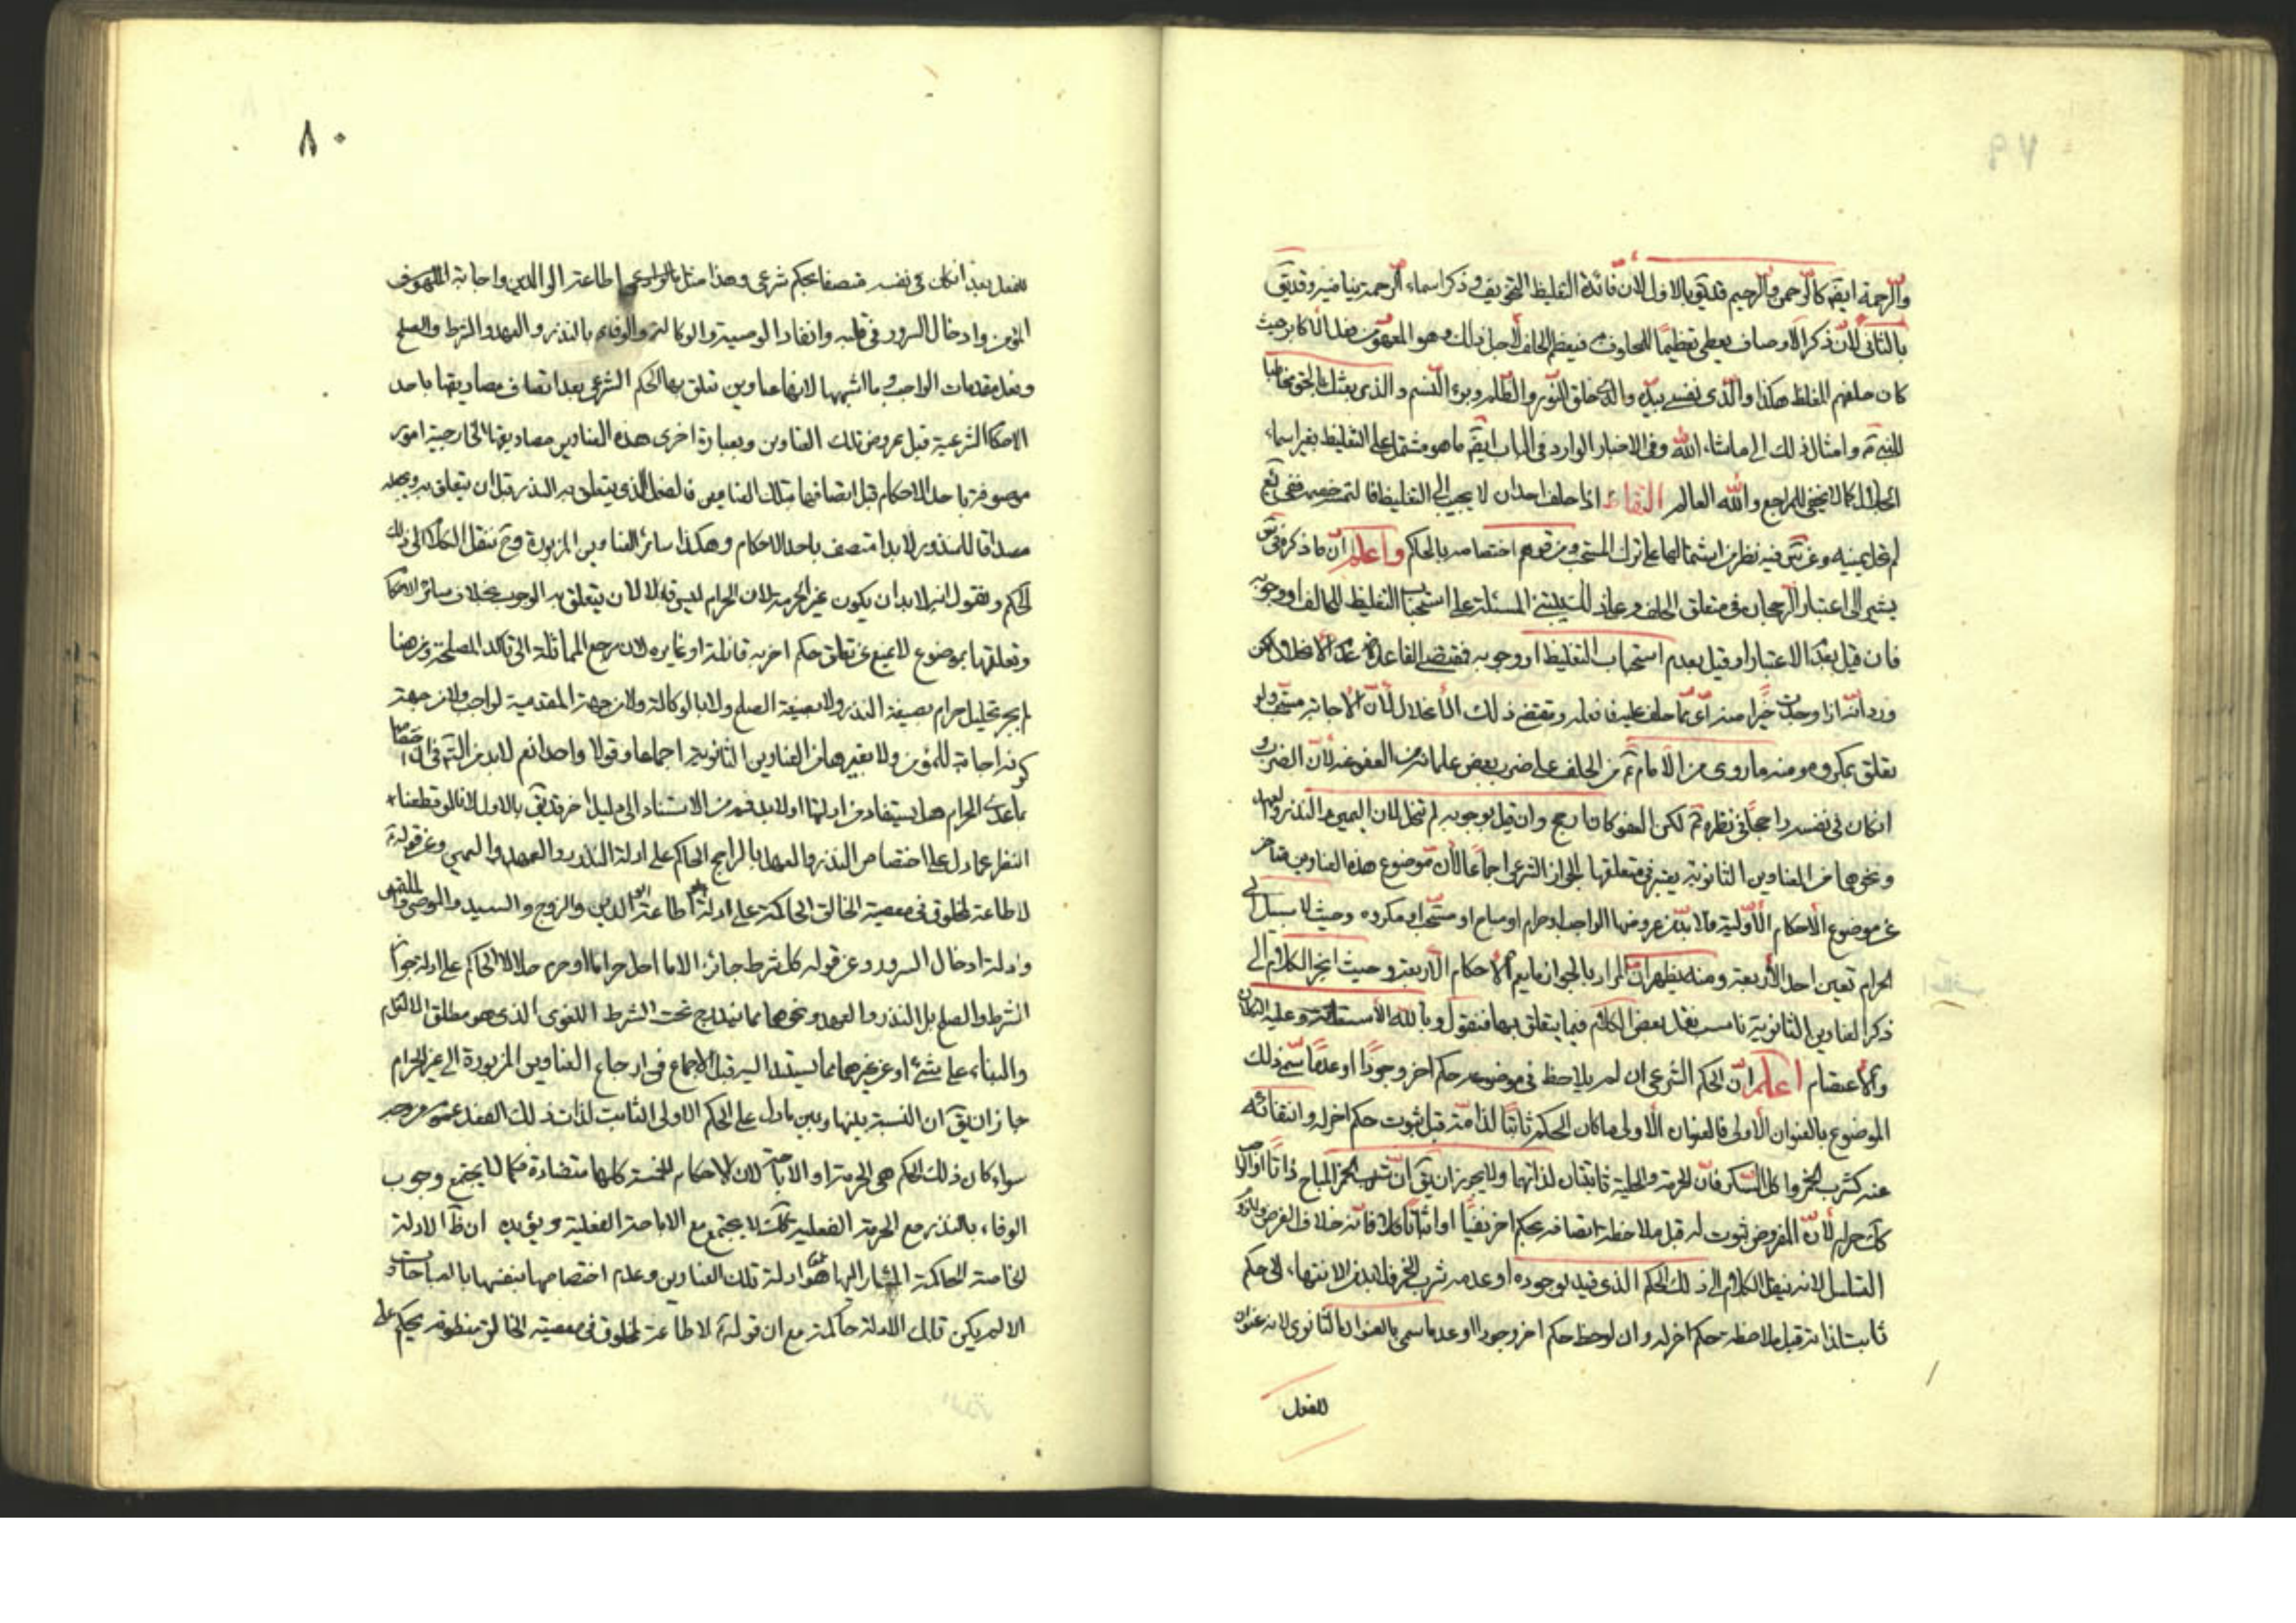 والرحمة ايضا كالرحمن والرحيم قد يق بالاول لان فائدة التغليظ التخويف وذكر اسماء الرحمة ينافيه وقد يق
بالثانى لان ذكر الاوصاف يعطى تعظيمًا للمحلوف به فيعظم الحلف لاجل ذلك وهو المعهود من فضلاء الاكابر حيث
كان حلفهم المغلظ هكذا والذى نفسى بيده والذى خلق النور والظلم وبرء النسم والذى بعثك بالحق مخاطبا
للنبى وامثال ذلك الى ماشاء الله وفى الاخبار الوارد فى الباب ايضا ما هو مشتمل على التغليظ بغير اسماء
الجلال كما لا يخفى للمراجع والله العالم اذا حلف احد ان لا يجيب الى التغليظ فالتمسه خصمه ففى يع
لم تحل يمينه وعن فيه نظر من اشتمالها على ترك المستحب ومن توهم اختصاصه بالحاكم واعلم ان ما ذكره
يشير الى اعتبار الرجحان فى متعلق الحلف وعلى ذلك يبتنى المسئلة على استحباب التغليظ للحالف او وجوبه
فان قيل بعدم الاعتبار او قيل بعدم استحباب التغليظ او وجوبه فمقتضى القاعدة عدم الانحلال لكن
ورد انه اذا وجدت خيرًا منه اى مما حلف عليه فافعله ويقتضى ذلك الانحلال لان الاجابة مستحب ولو
تعلق بمكروه ومنه ما روى من الامام من الحلف على ضرب بعض غلمانه ثم العفو عنه لان الضرب و
ان كان فى نفسه راجحًا فى نظره لكن العفو كان ارجح وان قيل بوجوبه لم تنحل لان اليمين والنذر والعهد
ونحوها من العناوين الثانوية يعتبر فى متعلقها الجواز الشرعى اجماعًا لان موضوع هذه العناوين متاخر
عن موضوع الاحكام الاولية فلا بد من عروضها الواجب او حرام او مباح او مستحب او مكروه وحيث لا سبيل الى
الحرام تعين احد الاربعة ومنه يظهر ان المراد بالجواز ما يعم الاحكام الاربعة وحيث انجر الكلام الى
ذكر العناوين الثانوية ناسب نقل بعض الكلام فيما يتعلق بها فنقول وبالله الاستعانة وعليه التكلان
والاعتصام اعلم ان الحكم الشرعى ان لم يلاحظ فى موضوعه حكم اخر وجودًا او عدمًا سمى ذلك
الموضوع بالعنوان الاولى فالعنوان الاولى ما كان الحكم ثابتًا لذاته قبل ثبوت حكم اخر له وانتفائه
عنه كشرب الخمر واكل السكر فان الحرمة والحلية ثابتتان لذاتهما ولا يجوز ان يق ان شرب الخمر المباح ذاتًا
حرام لان المفروض ثبوت له قبل ملاحظة اتصافه بحكم اخر نفيًا او اثباتًا فانه خلاف الفرض
التسلسل لانه ينقل الكلام الى ذلك الحكم الذى قيد بوجوده او عدمه شرب الخمر فلا بد من الانتهاء الى حكم
ثابت لذاته قبل ملاحظة حكم اخر له وان لوحظ حكم اخر وجودا او عدما سمى بالعنوان الثانوى لانه عنوان
للفعل
٨٠
للفعل بعد ان كان فى نفسه متصفا بحكم شرعى وهذا مثل اطاعة الوالدين واجابة الملهوف
المؤمن وادخال السرور فى قلبه وانفاذ الوصية والوكالة والوفاء بالنذر والعهد والشرط والصلح
وفعل مقدمات الواجب وما اشبهها لانها عناوين تعلق بها الحكم الشرعى بعد اتصاف مصاديقها باحد
الاحكام الشرعية قبل عروض تلك العناوين وبعبارة اخرى هذه العناوين مصاديقها الخارجية امور
موصوفة باحد الاحكام قبل اتصافها بتلك العناوين فالفعل الذى يتعلق به النذر قبل ان يتعلق به ويجعله
مصداقا للمنذور لابد متصف باحد الاحكام وهكذا سائر العناوين المزبورة وح ننقل الكلام الى ذلك
الحكم ونقول انه لابد ان يكون غير الحرمة لان الحرام ليس قابلا لان يتعلق به الوجوب بخلاف سائر الاحكام
وتعلقها بموضوع لا يمنع عن تعلق حكم اخر به او غايره لان مرجع المماثلة الى تاكد المصلحة ومن هنا
لم يجز تحليل حرام بصيغة النذر ولا بصيغة الصلح ولا بالوكالة ولا من جهة المقدمية لواجب ولا من جهة
كونه اجابة للمؤمن ولا بغيرها من العناوين الثانوية اجماعا وقولا واحدا نعم لابد من التم فى ان اختصاصها
بما عدى الحرام هل يستفاد من ادلتها او لابد فيه من الاستناد الى دليل اخر قد يق بالاول لانا لو قطعنا
النظر عما دل على اختصاص النذر والعهد بالراجح الحاكم على ادلة النذر والعهد واليمين وعن قوله
لا طاعة لمخلوق فى معصية الخالق الحاكمة على ادلة اطاعة الوالدين والزوج والسيد والموصى
وادلة ادخال السرور وعن قوله كل شرط جائز الا ما احل حراما او حرم حلالا الحاكم على ادلة جواز
الشرط والصلح بل النذر والعهد ونحوها مما يندرج تحت الشرط اللغوى الذى هو مطلق الالتزام
والبناء على شئ او عن غيرها مما يستند اليه قبل الاجماع فى ارجاع العناوين المزبورة الى غير الحرام
جاز ان يق ان النسبة بينها وبين ما دل على الحكم الاولى الثابت لذات ذلك الفعل عموم من وجه
سواء كان ذلك الحكم هى الحرمة او الاباحة لان الاحكام الخمسة كلها متضادة فكما لا يجتمع وجوب
الوفاء بالنذر مع الحرمة الفعلية كك لا يجتمع مع الاباحة الفعلية ويؤيده ان ظ الادلة
الخاصة الحاكمة المشار اليها هو ادلة تلك العناوين وعدم اختصاصها بنفسها بالمباحات و
الا لم يكن تلك الادلة حاكمة مع ان قوله لا طاعة لمخلوق فى معصية الخالق منطوقه يحكم على